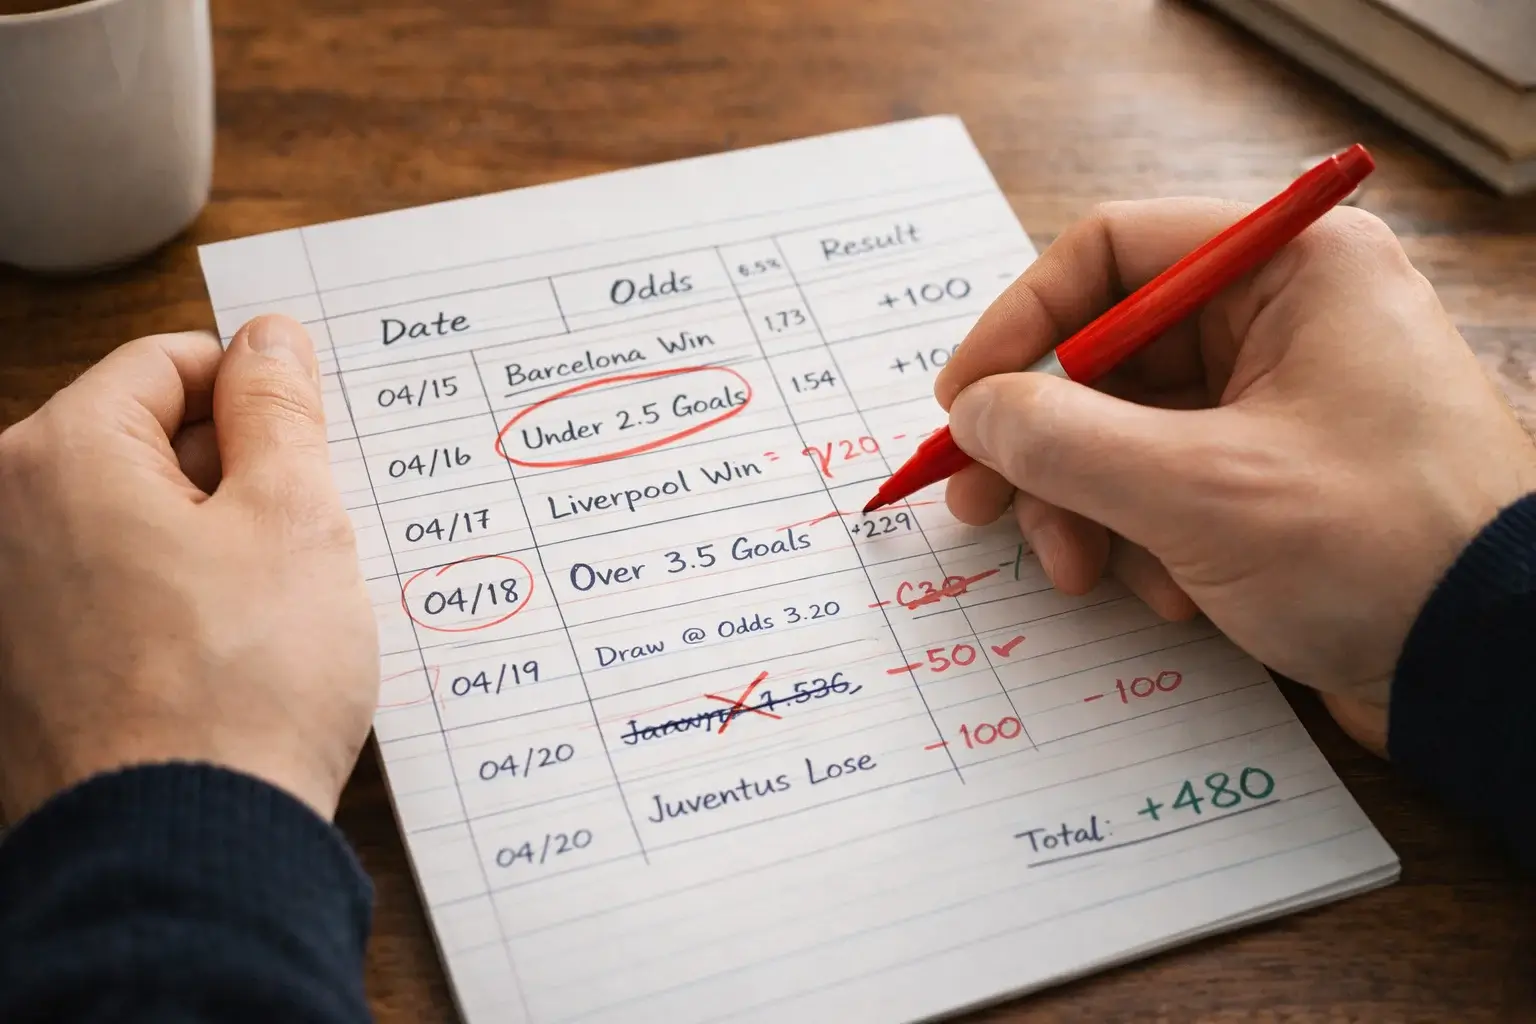 Date Odds 6.5% Result
04/15 Barcelona Win 1.73 +100
04/16 Under 2.5 Goals 1.54
04/17 Liverpool Win =
04/18 Over 3.5 Goals +229
04/19 Draw @ Odds 3.20
04/20 -50 ✓
04/20 Juventus Lose -100 -100
Total: +480